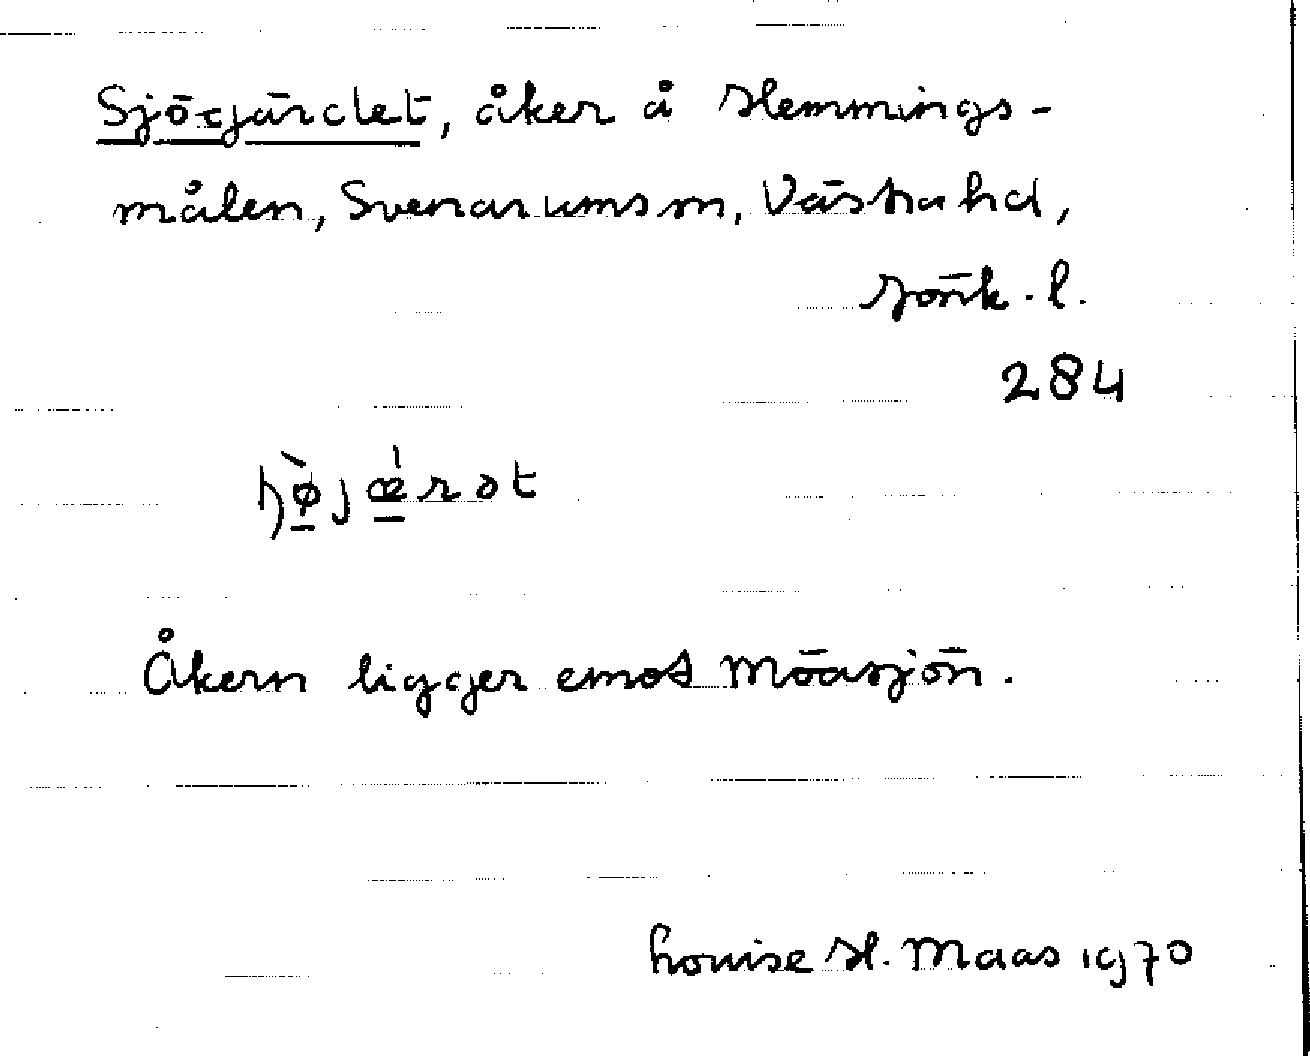 Sjögärdet, åker å Hemmings-
målen, Svenarums sn, Västra hd,
Jönk. l.
284
ɧø̀jæ̀rət
Åkern ligger emot Möasjön.
Louise H. Maas 1970